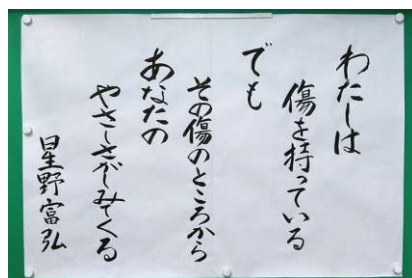 わたしは
傷を持っている
でも
その傷のところから
あなたの
やさしさがしみてくる
星野富弘